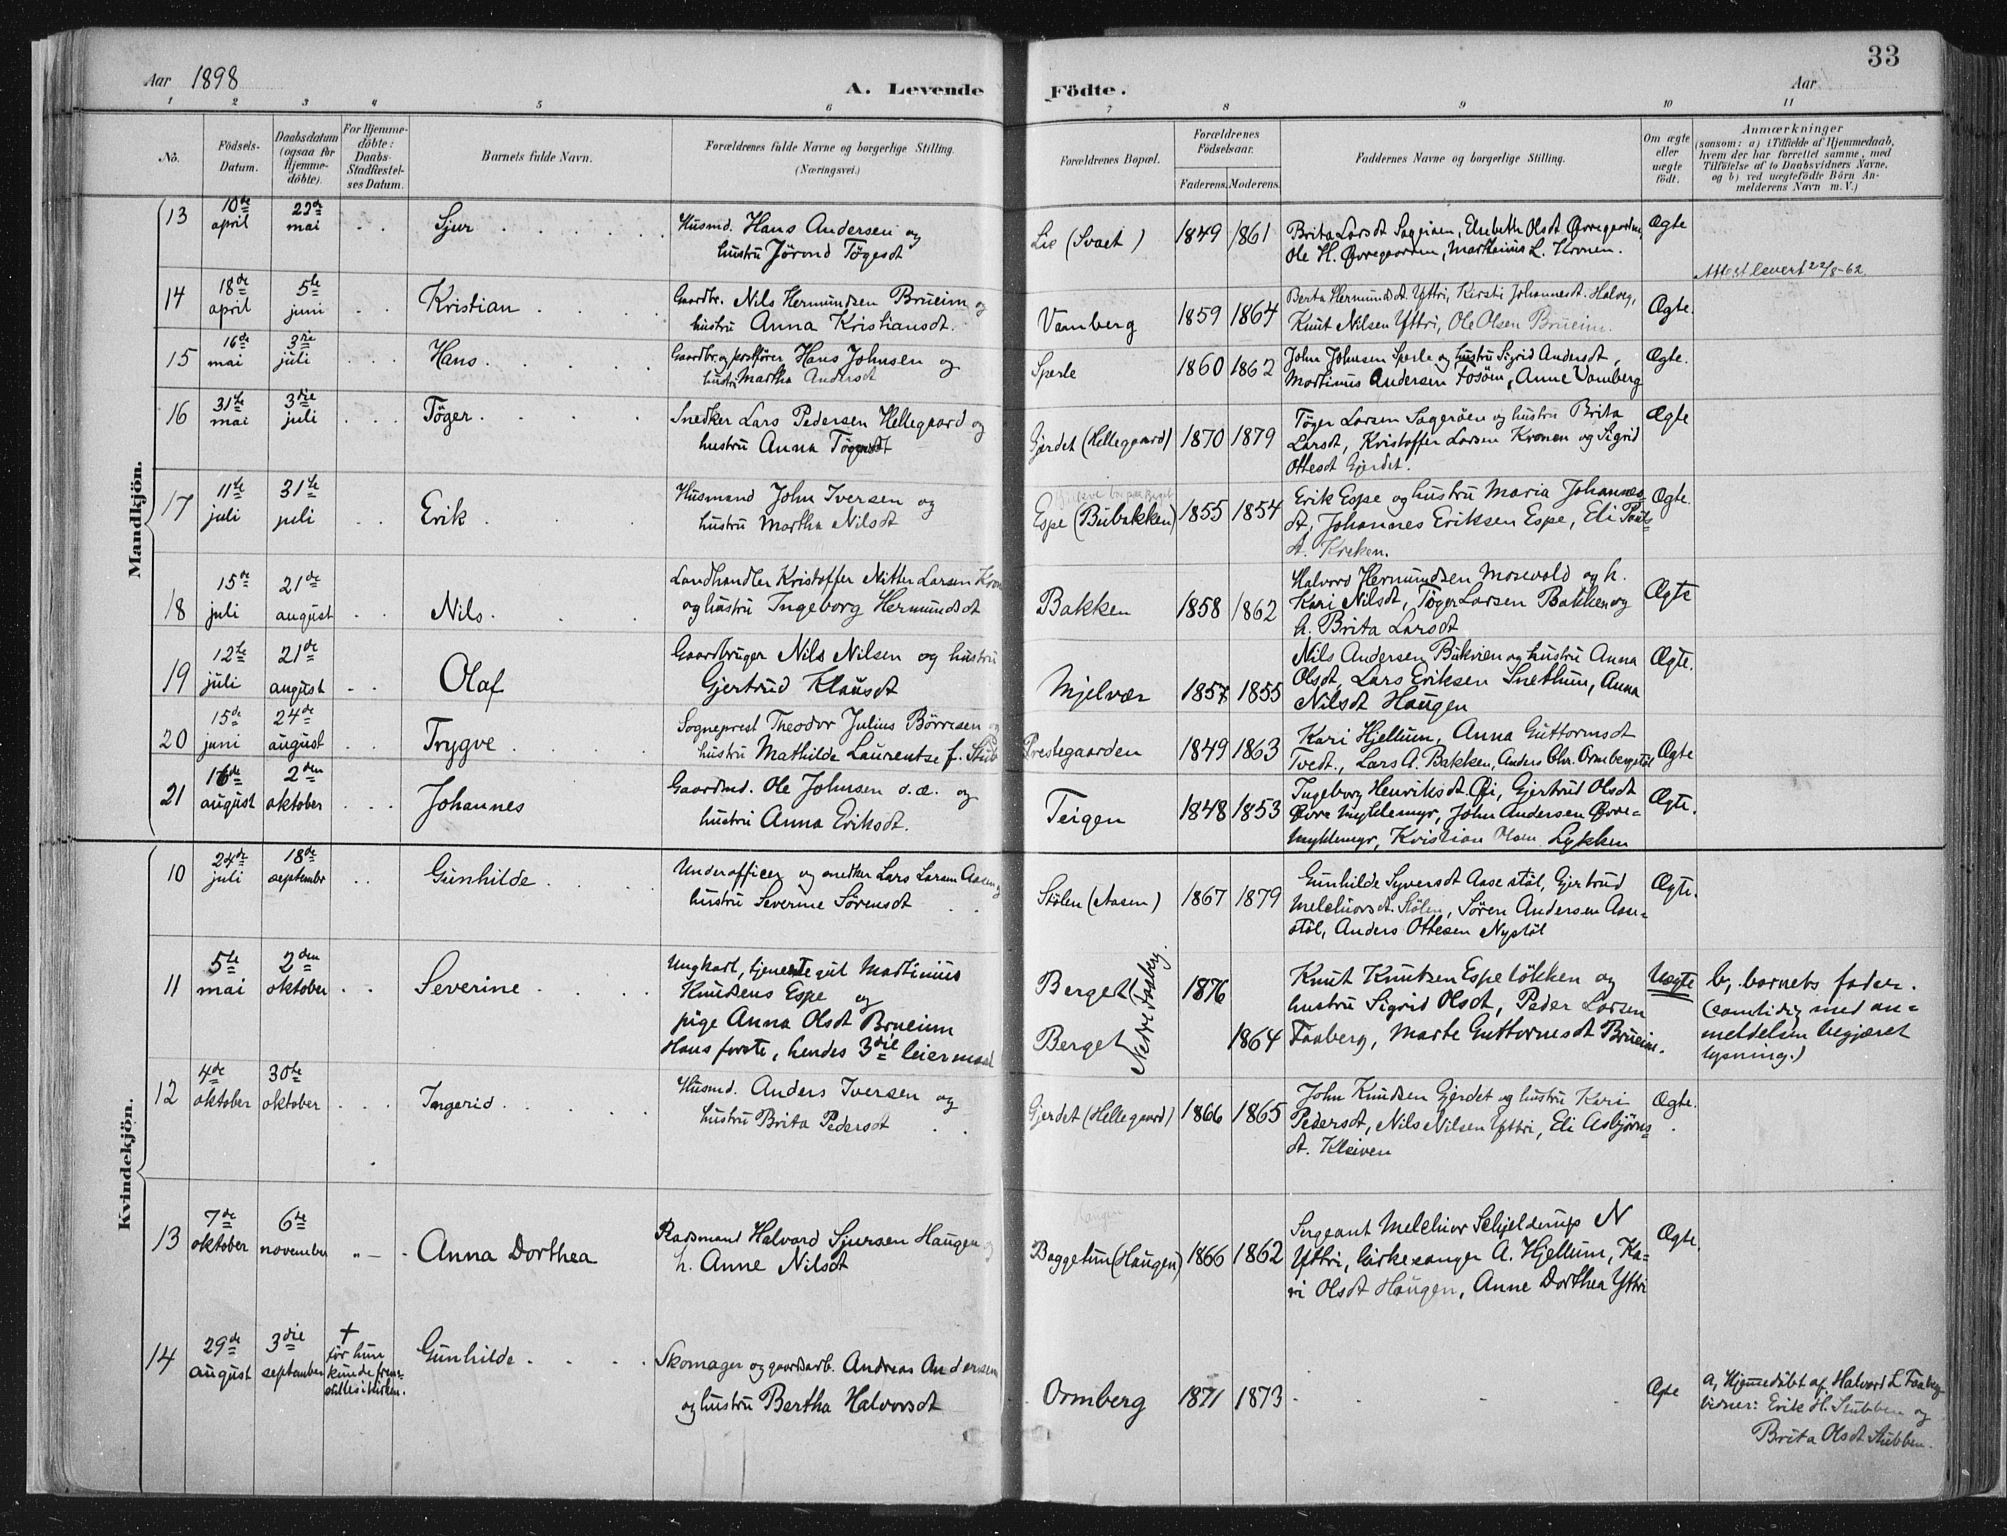 Aar 1898
A. Levende Födte.
33
Aar
1 2 3 4 5 6 7 8 9 10 11
No.
Födsels-Datum.
Daabsdatum (ogsaa for Hjemme-döbte).
For Hjemme-döbte: Daabs-Stadfæstel-ses Datum.
Barnets fulde Navn.
Forældrenes fulde Navne og borgerlige Stilling. (Næringsvei.)
Forældrenes Bopæl.
Forældrenes Födselsaar.
Faderens. Moderens.
Faddernes Navne og borgerlige Stilling.
Om ægte eller uægte födt.
Anmærkninger
(saasom: a) i Tilfælde af Hjemmedaab, hvem der har forrettet samme, med Tilföielse af to Daabsvidners Navne, og b) ved uægtefödte Börn An-melderens Navn m. V.)
Mandkjön.
13 10de april 22de mai Sjur
Husmd. Hans Andersen og
hustru Jörond Tögesdt
Lie (Svaet) 1849 1861
Brita Larsdt Sagrien, Elsebeth Olsdt Övregaarden,
Ole H. Övregaarden, Marthinus L. Kronen.
Ægte
Attest levert 22/8-62.
14 18de april 5te juni Kristian
Gaardbr. Nils Hermundsen Brueim og
hustru Anna Kristiansdt.
Vamberg 1859 1864
Berta Hermundsdt. Yttri, Kirsti Johannesdt. Halvey,
Knut Nilsen Yttri, Ole Olsen Brueim.
Ægte.
15 16de mai 3die juli Hans.
Gaardbr. og postförer Hans Johnsen og
hustru Martha Andersdt
Sperle 1860 1862
John Johnsen Sperle og hustru Sigrid Andersdt,
Martinus Andersen Fosöm, Anne Vamberg
Ægte.
16 31te mai 3die juli Töger.
Snedker Lars Pedersen Hellegaard og
hustru Anna Tögersdt
Gjerdet (Hellegaard) 1870 1879
Töger Larsen Sageröen og hustru Brita
Larsdt, Kristoffer Larsen Kronen og Sigrid
Ottesdt Gjerdet.
Ægte
17 11te juli 31te juli Erik.
Husmand John Iversen og
hustru Martha Nilsdt
Espe (Bubakken) 1855 1854
Erik Espe og hustru Maria Johannes-
dt, Johannes Eriksen Espe, Eli Pauls-
dt. Kreken.
Ægte.
18 15de juli 21de august Nils.
Landhandler Kristoffer Nitter Larsen Kron
og hustru Ingeborg Hermundsdt
Bakken 1858 1862
Halvord Hermundsen Mosevold og h.
Kari Nilsdt, Töger Larsen Bakken og
h. Brita Larsdt
Ægte
19 12te juli 21de august Olaf
Gaardbruger Nils Nilsen og hustru
Gjertrud Klausdt
Mjelvær 1857 1855
Nils Andersen Bukvien og hustru Anna
Olsdt, Lars Eriksen Snethun, Anna
Nilsdt Haugen
Ægte.
20 15de juni 24de august Trygve
Sogneprest Theodor Julius Börresen og
hustru Mathilde Laurentse f. Stub
Prestegaarden 1849 1863
Kari Hjellum, Anna Guttormsdt
Tvedt., Lars A. Bakken, Anders Chr. Ormbergstöl
Ægte
21 16de august 2den oktober Johannes
Gaardmd. Ole Johnsen d.æ. og
hustru Anna Eriksdt.
Teigen 1848 1853
Ingeborg Henriksdt. Öi, Gjertrud Olsdt
Övre Myklemyr, John Andersen Övre-
Myklemyr, Kristian Lykken
Ægte.
Kvindekjön.
10 24de juli 18de september Gunhilde
Underofficer og snedker Lars Larsen Aasen og
hustru Severine Sörensdt
Stölen (Aasen) 1867 1879
Gunhilde Syversdt Aasestöl, Gjertrud
Melchiorsdt. Stölen, Sören Andersen Aase-
stöl, Anders Ottesen Nystöl
Ægte.
11 5te mai 2den oktober Severine
Ungkarl, tjenestegut Martinius
Knudsens Espe og
pige Anna Olsdt Brueim
Hans förste, hendes 3die leiermaal
Berget 1876
Berget 1864
Nedre Faaberg
Knut Knutsen Espelökken og
hustru Sigrid Olsdt, Peder Larsen
Faaberg, Marte Guttormsdt Brueim.
Uægte
b, barnets fader.
(samtidig med an-
meldelsen begjæret
lysning.)
12 4de oktober 30te oktober Ingerid
Husmd. Anders Iversen og
hustru Brita Pedersdt
Gjerdet (Hellegaard) 1866 1865
John Knudsen Gjerdet og hustru Kari
Pedersdt, Nils Nilsen Yttri, Eli Asbjörns-
dt. Kleiven
Ægte.
13 7de oktober 6te november Anna Dorthea
Pladsmand Halvard Sjursen Haugen og
h. Anne Nilsdt
Haugen
Baggetun (Haugen) 1866 1862
Sergeant Melchior Schjelderup N
Yttri, kirkesanger A. Hjellum, Ka-
ri Olsdt Haugen, Anne Dorthea Yttri
Ægte.
14 29de august 3die september
† för hun kunde frem-stilles i kirken.
Gunhilde
Skomager og gaardarb. Andreas Andersen
og hustru Bertha Halvorsdt
Ormberg 1871 1873
Ægte
a, Hjemmedöbt af Halvard L Faaberg
vidner: Erik H. Stubben og
Brita Olsdt. Stubben.